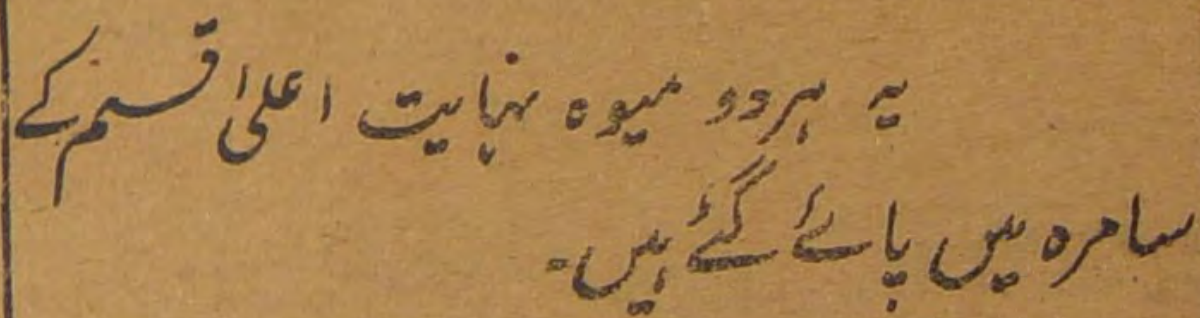 یہ ہر دو میوہ نہایت اعلیٰ قسم کے
سامرہ میں پائے گئے ہیں۔